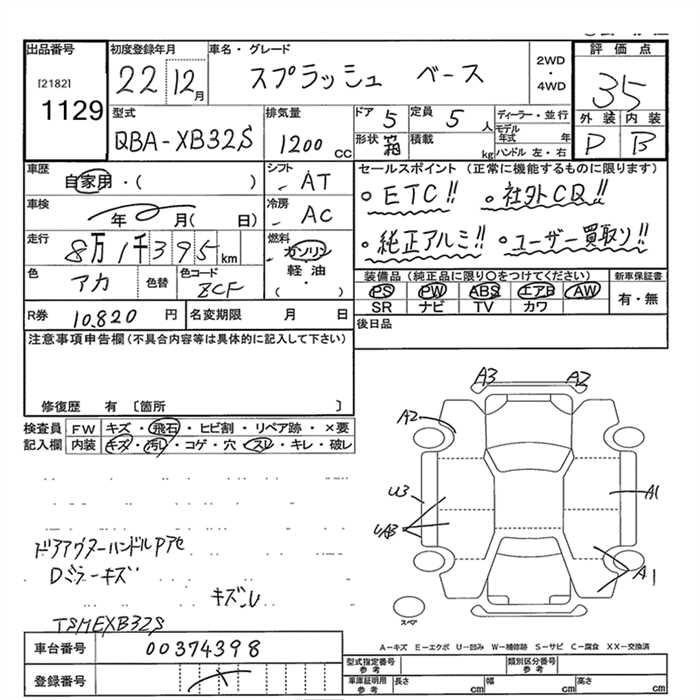 出品番号 初度登録年月 車名・グレード 2WD・4WD 評価点
[2182] 1129 22 12月 スプラッシュ ベース 35
型式 排気量 ドア 5 定員 5人 ディーラー・並行 外装 内装
QBA-XB32S 1200cc 形状 箱 積載 kg モデル年式 年 D B
ハンドル 左・右
車歴 自家用・( ) シフト AT セールスポイント (正常に機能するものに限ります)
車検 年 月( 日) 冷房 AC ◦ETC!! ◦社外CD!!
走行 8万1千395km 燃料 ガソリン 軽油・( ) ◦純正アルミ!! ◦ユーザー買取り!!
色 アカ 色替 色コード ZCF 装備品(純正品に限り○をつけてください) 新車保証書
PS PW ABS エアB AW 有・無
SR ナビ TV カワ
R券 10,820円 名変期限 月 日 後日品
注意事項申告欄(不具合内容等は具体的に記入して下さい)
修復歴 有 〔箇所 〕
検査員記入欄 FW キズ・飛石・ヒビ割・リペア跡・×要
内装 キズ・汚レ・コゲ・穴・スレ・キレ・破レ
A3 A2
A2
U3 A1
UA3
A1
ドアアウターハンドル
Dミラーキズ
キズ
スペア
TSMEXB32S
A-キズ E-エクボ U-凹み W-補修跡 S-サビ C-腐食 XX-交換済
車台番号 00374398
型式指定番号 参考 類別区分番号 参考
登録番号 車庫証明用 参考 長さ cm 幅 cm 高さ cm